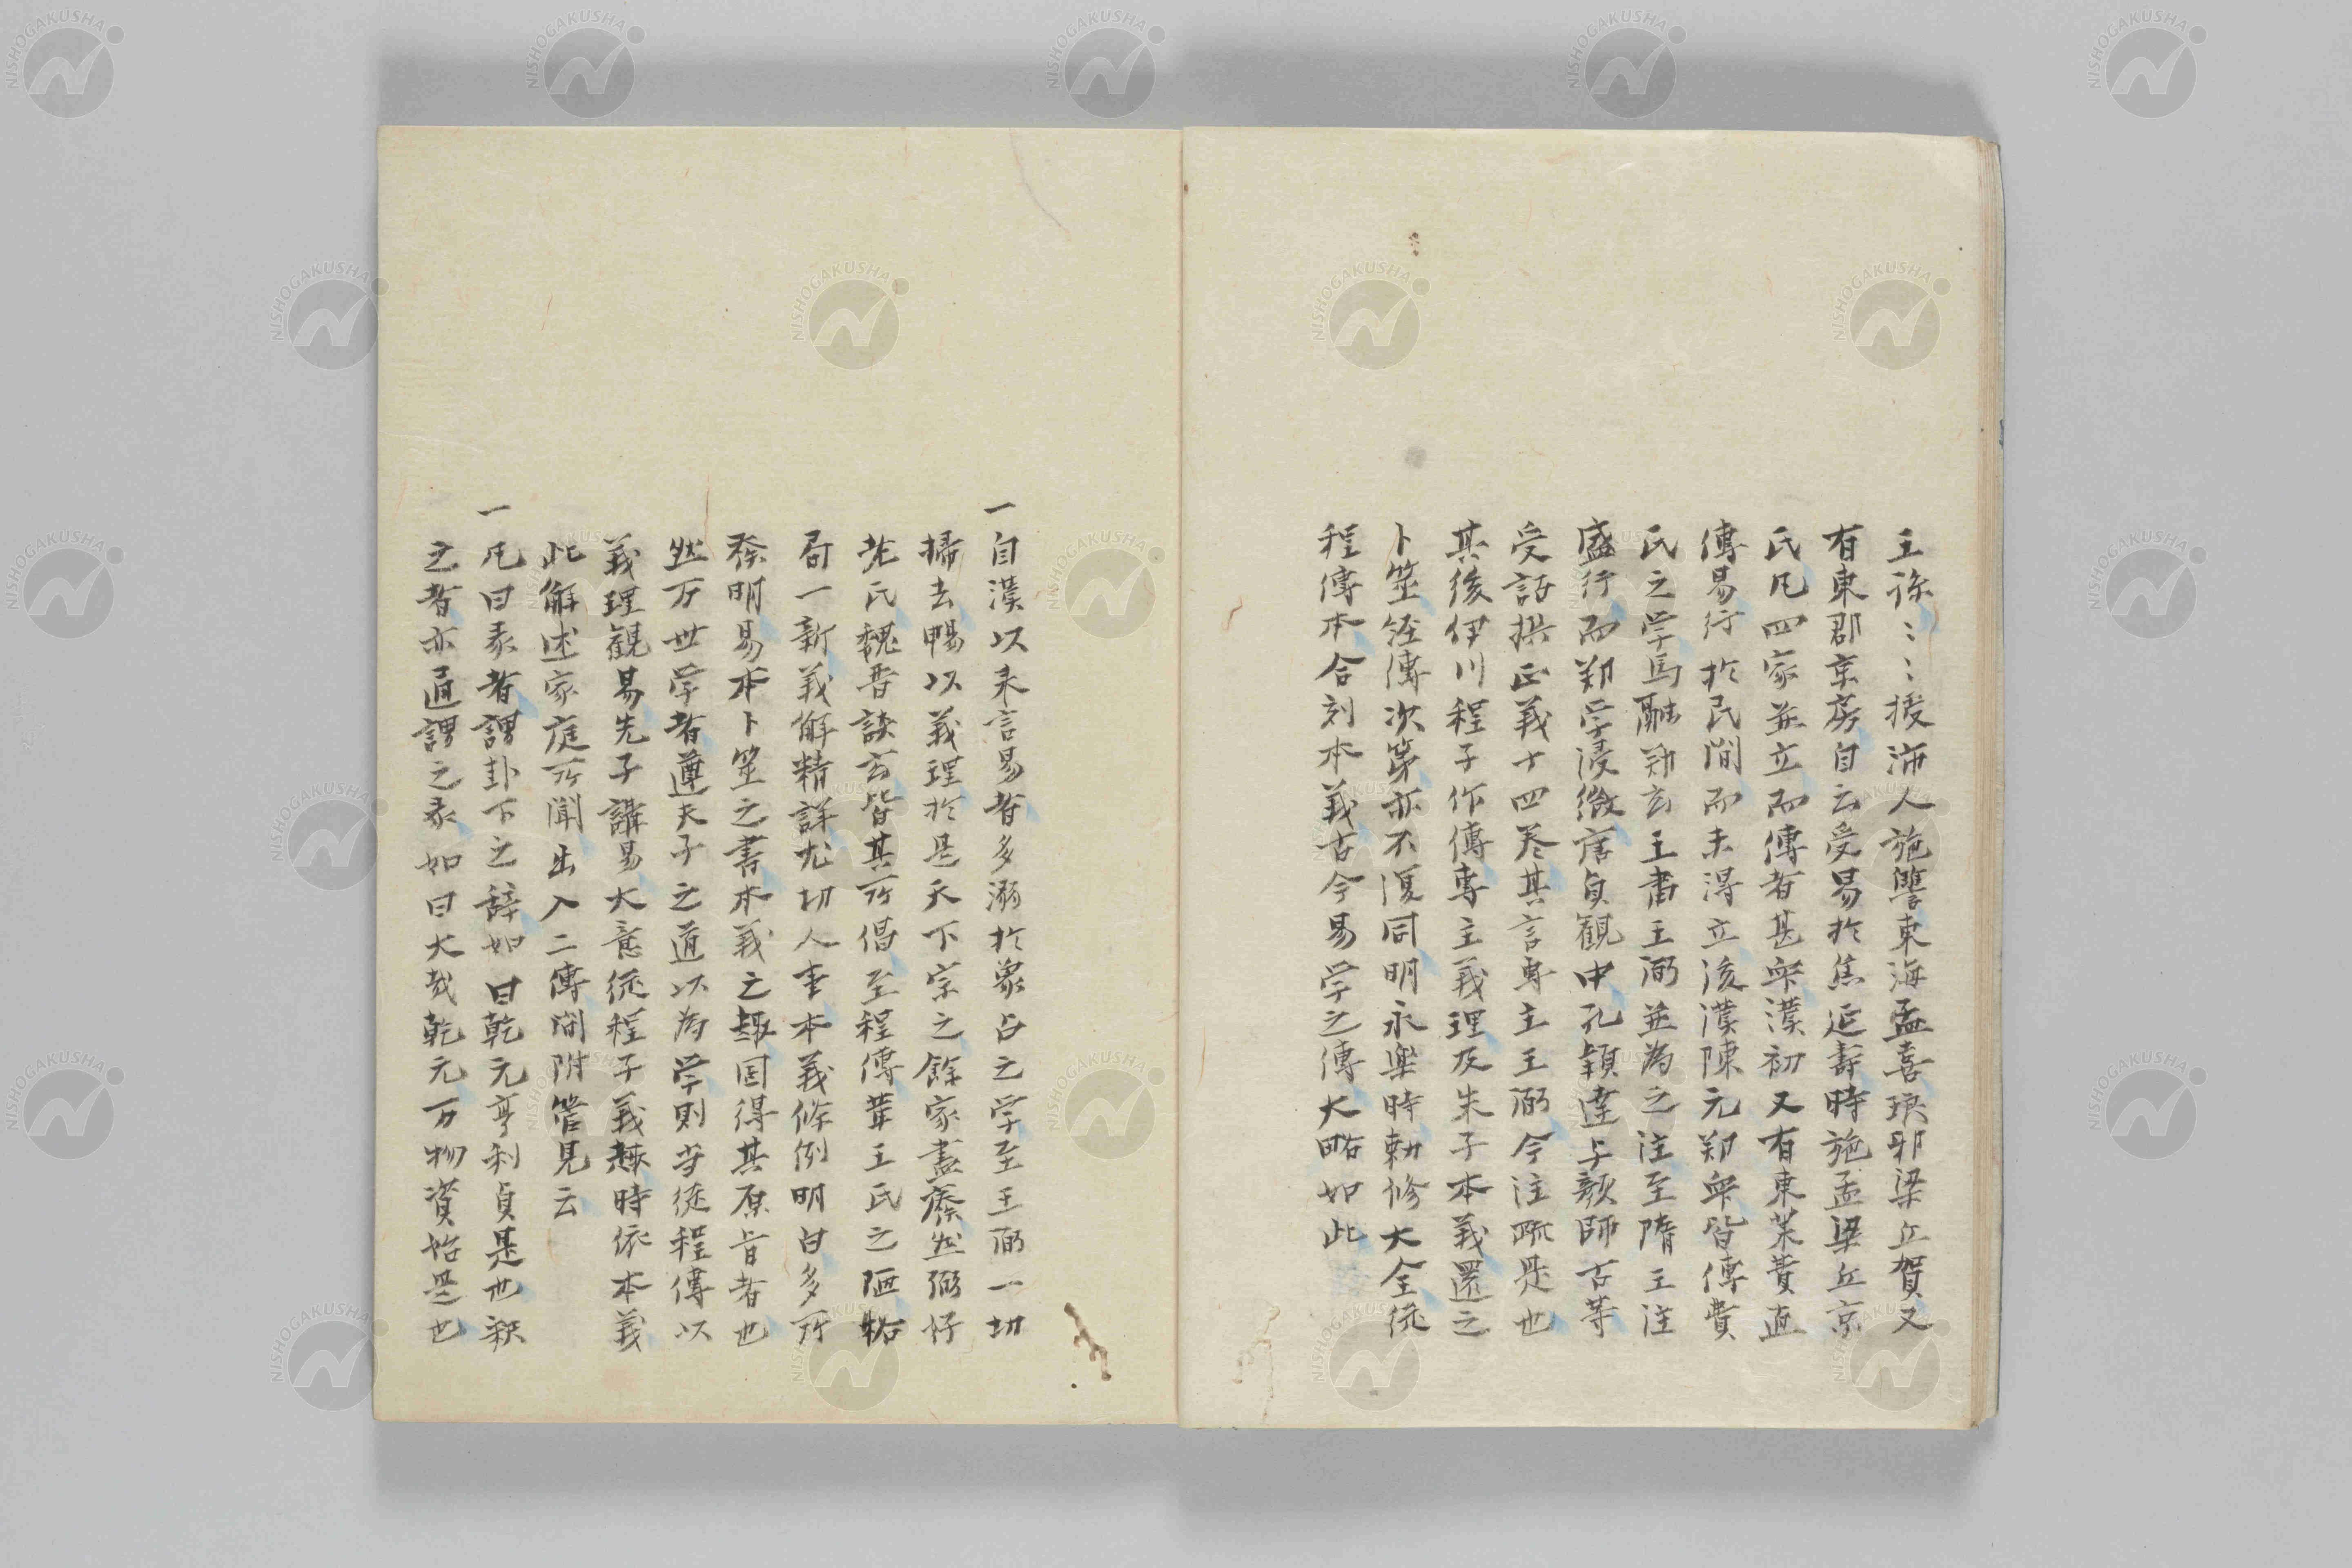 王孫〻〻授沛人施讐東海孟喜琅邪梁丘賀又
有東郡京房自云受易於焦延壽時施孟梁丘京
氏凡四家並立而傳者甚衆漢初又有東萊費直
傳易行於民間而未得立後漢陳元鄭衆皆傳費
氏之学馬融鄭玄王肅王弼並為之注至隋王注
盛行而鄭学浸微唐貞観中孔穎達与顔師古等
受詔撰正義十四巻其言専主王弼今注疏是也
其後伊川程子作傳專主義理及朱子本義還之
卜筮經傳次第亦不復同明永樂時勅修大全從
程傳本合刻本義古今易学之傳大略如此
一自漢以来言易者多溺於象占之学至王弼一切
掃去暢以義理於是天下宗之餘家盡廢然弼好
老氏魏晋談玄皆其所倡至程傳黄王氏之陋
局一新義解精詳尤切人事本義條例明白多所
發明易本卜筮之書本義之趣固得其原旨者也
然万世学者遵夫子之道以為学則当從程傳以
義理観易先子講易大意從程子義趣時依本義
此解述家庭所聞出入二傳間附管見云
一凡曰彖者謂卦下之辞如曰乾元亨利貞是也釈
之者亦通謂之彖如曰大哉乾元万物資始是也
NISHOGAKUSHA